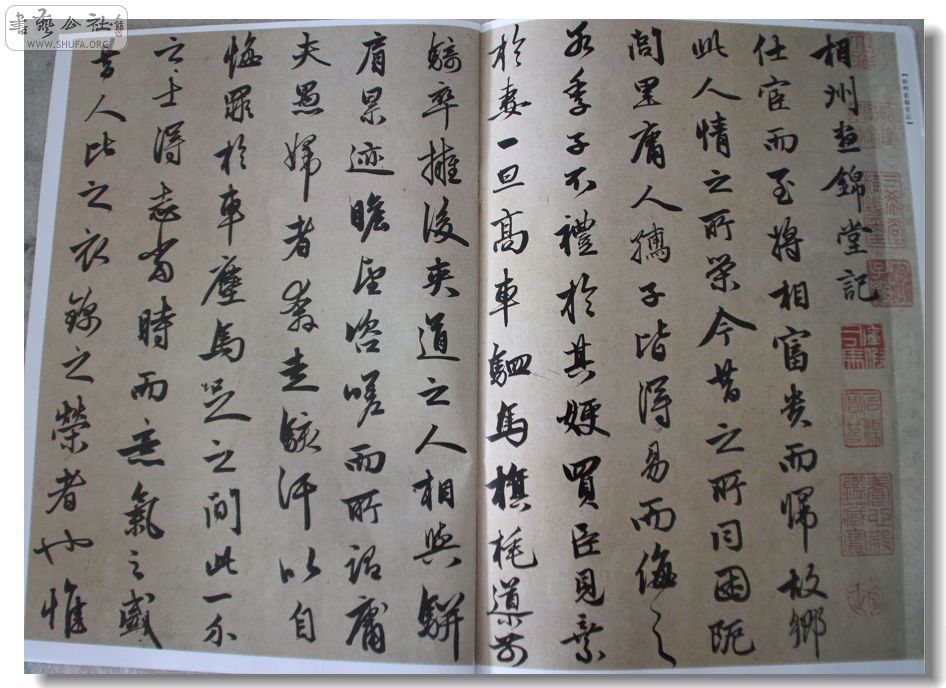 書藝公社
WWW.SHUFA.ORG
相州晝錦堂記
仕宦而至將相富貴而歸故鄉
此人情之所榮今昔之所同困阨
閭里庸人孺子皆得易而侮之
若季子不禮於其嫂買臣見棄
於妻一旦高車駟馬旗旄導前
騎卒擁後夾道之人相與駢
肩累迹瞻望咨嗟而所謂庸
夫愚婦者奔走駭汗以自
悔罪於車塵馬足之間此一介
之士得志當時而意氣之盛
昔人比之衣錦之榮者也惟